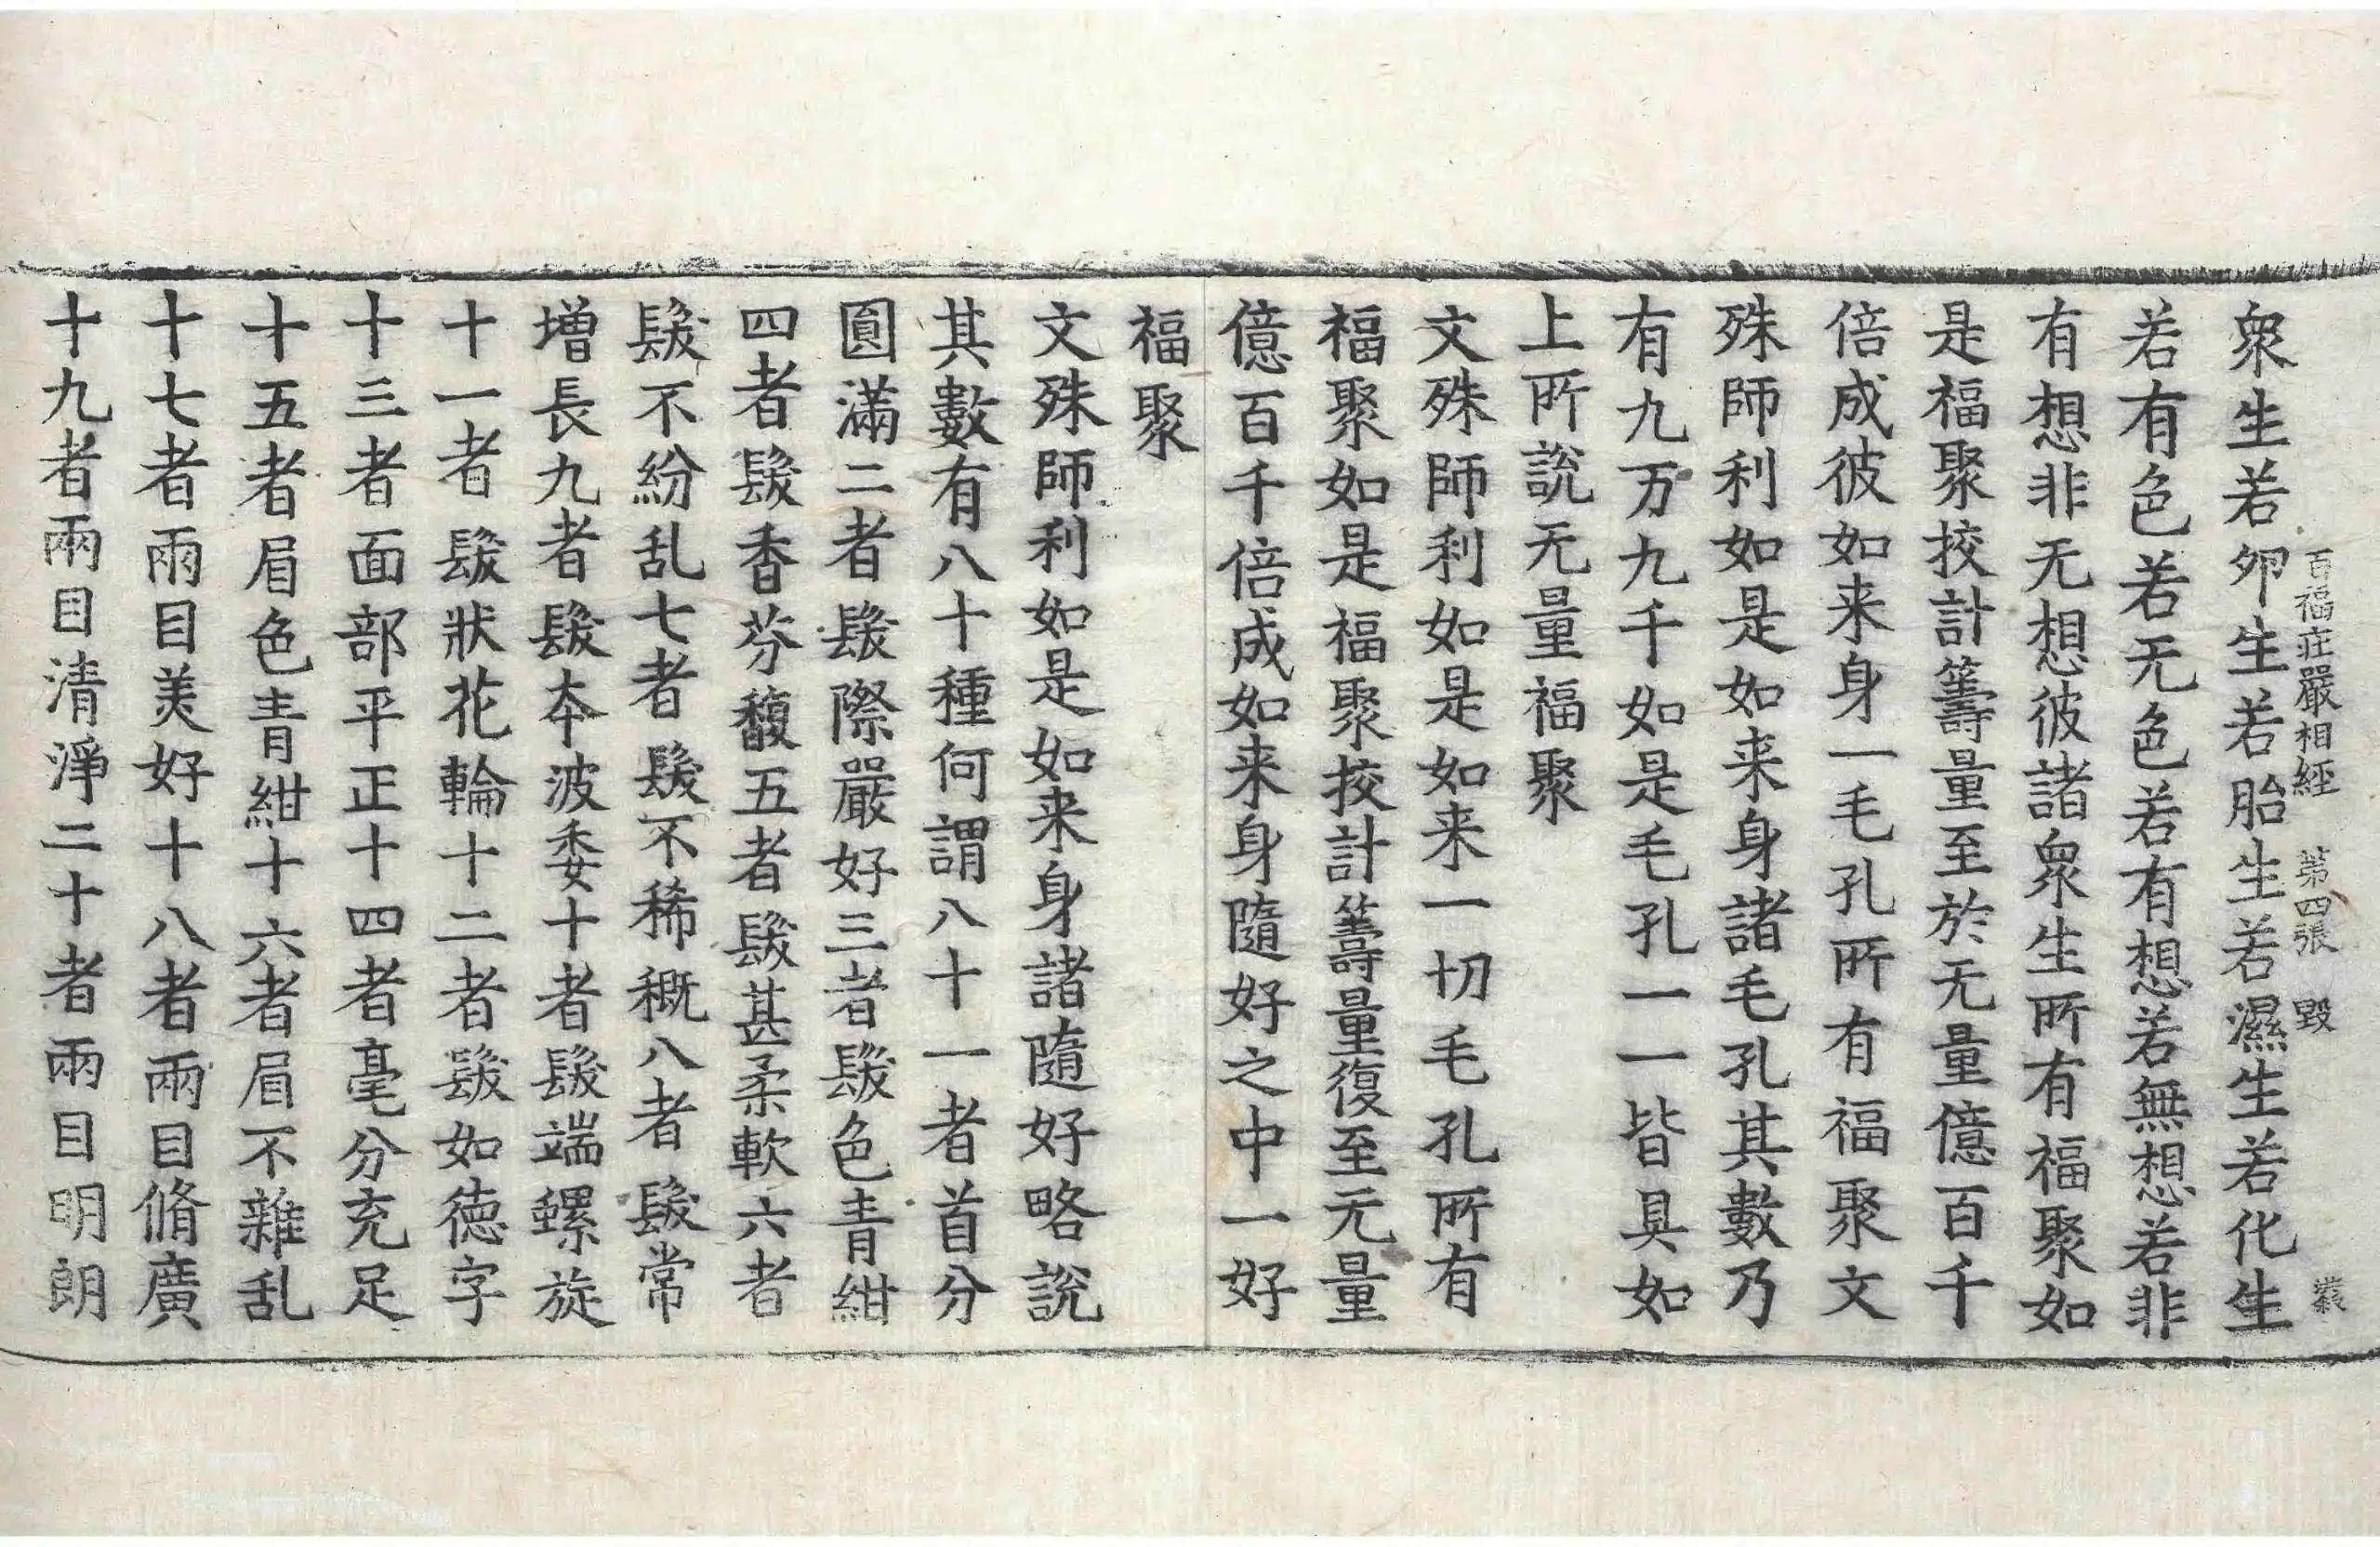 百福疘嚴相經　第四張　毀
衆生若夘生若胎生若濕生若化生
若有色若无色若有想若無想若非
有想非无想彼諸衆生所有福聚如
是福聚挍計籌量至於无量億百千
倍成彼如来身一毛孔所有福聚文
殊師利如是如来身諸毛孔其數乃
有九万九千如是毛孔一一皆具如
上所說无量福聚
文殊師利如是如来一切毛孔所有
福聚如是福聚挍計籌量復至无量
億百千倍成如来身隨好之中一好
福聚
文殊師利如是如来身諸隨好略說
其數有八十種何謂八十一者首分
圓滿二者髮際嚴好三者髮色青紺
四者髮香芬馥五者髮甚柔軟六者
髮不紛乱七者髮不稀穊八者髮常
增長九者髮夲波委十者髮端螺旋
十一者髮狀花輪十二者髮如德字
十三者面部平正十四者毫分充足
十五者眉色青紺十六者眉不雜乱
十七者兩目美好十八者兩目脩廣
十九者兩目清淨二十者兩目明朗